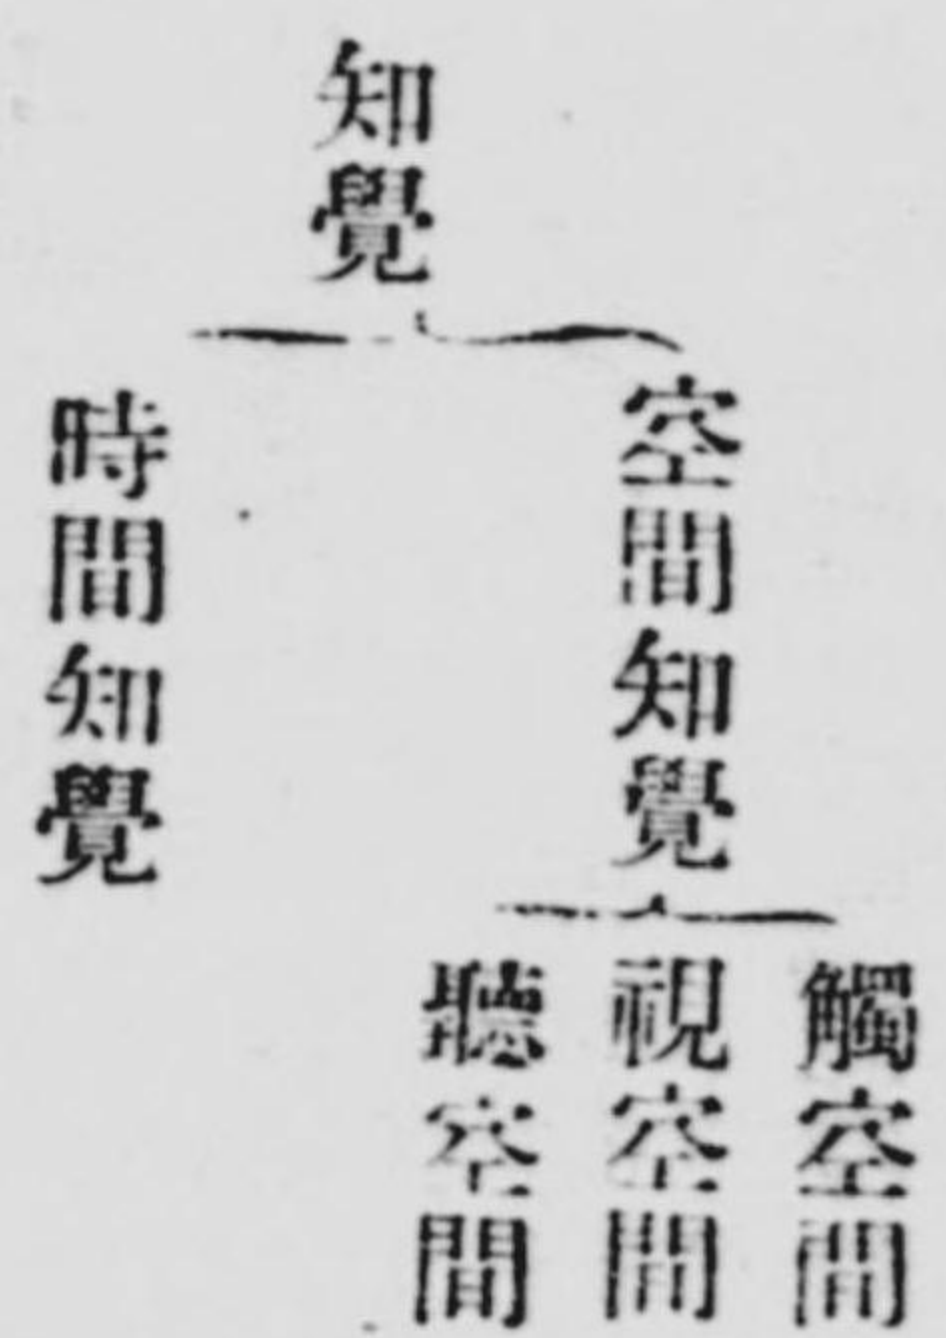 知覺
空間知覺
觸空間
視空間
聽空間
時間知覺